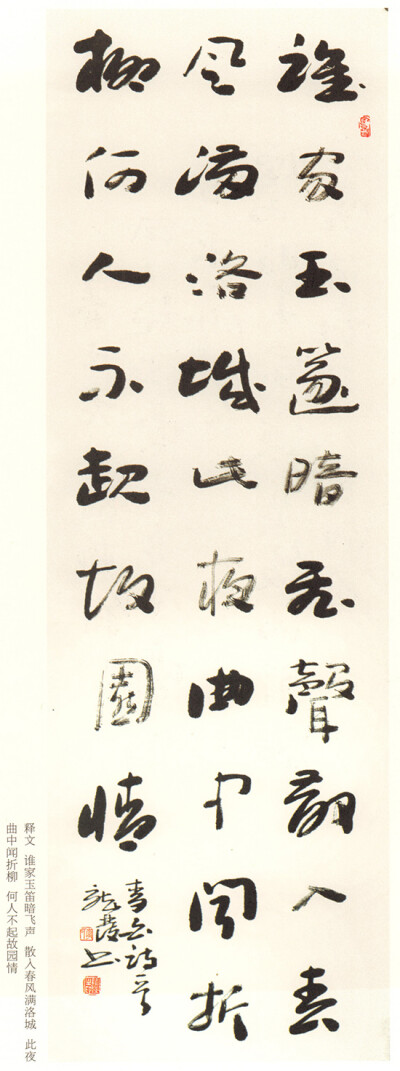 誰家玉篴暗飛聲散入春
風滿洛城此夜曲中聞折
柳何人不起故園情
李白詩一首
书
释文 谁家玉笛暗飞声 散入春风满洛城 此夜
曲中闻折柳 何人不起故园情